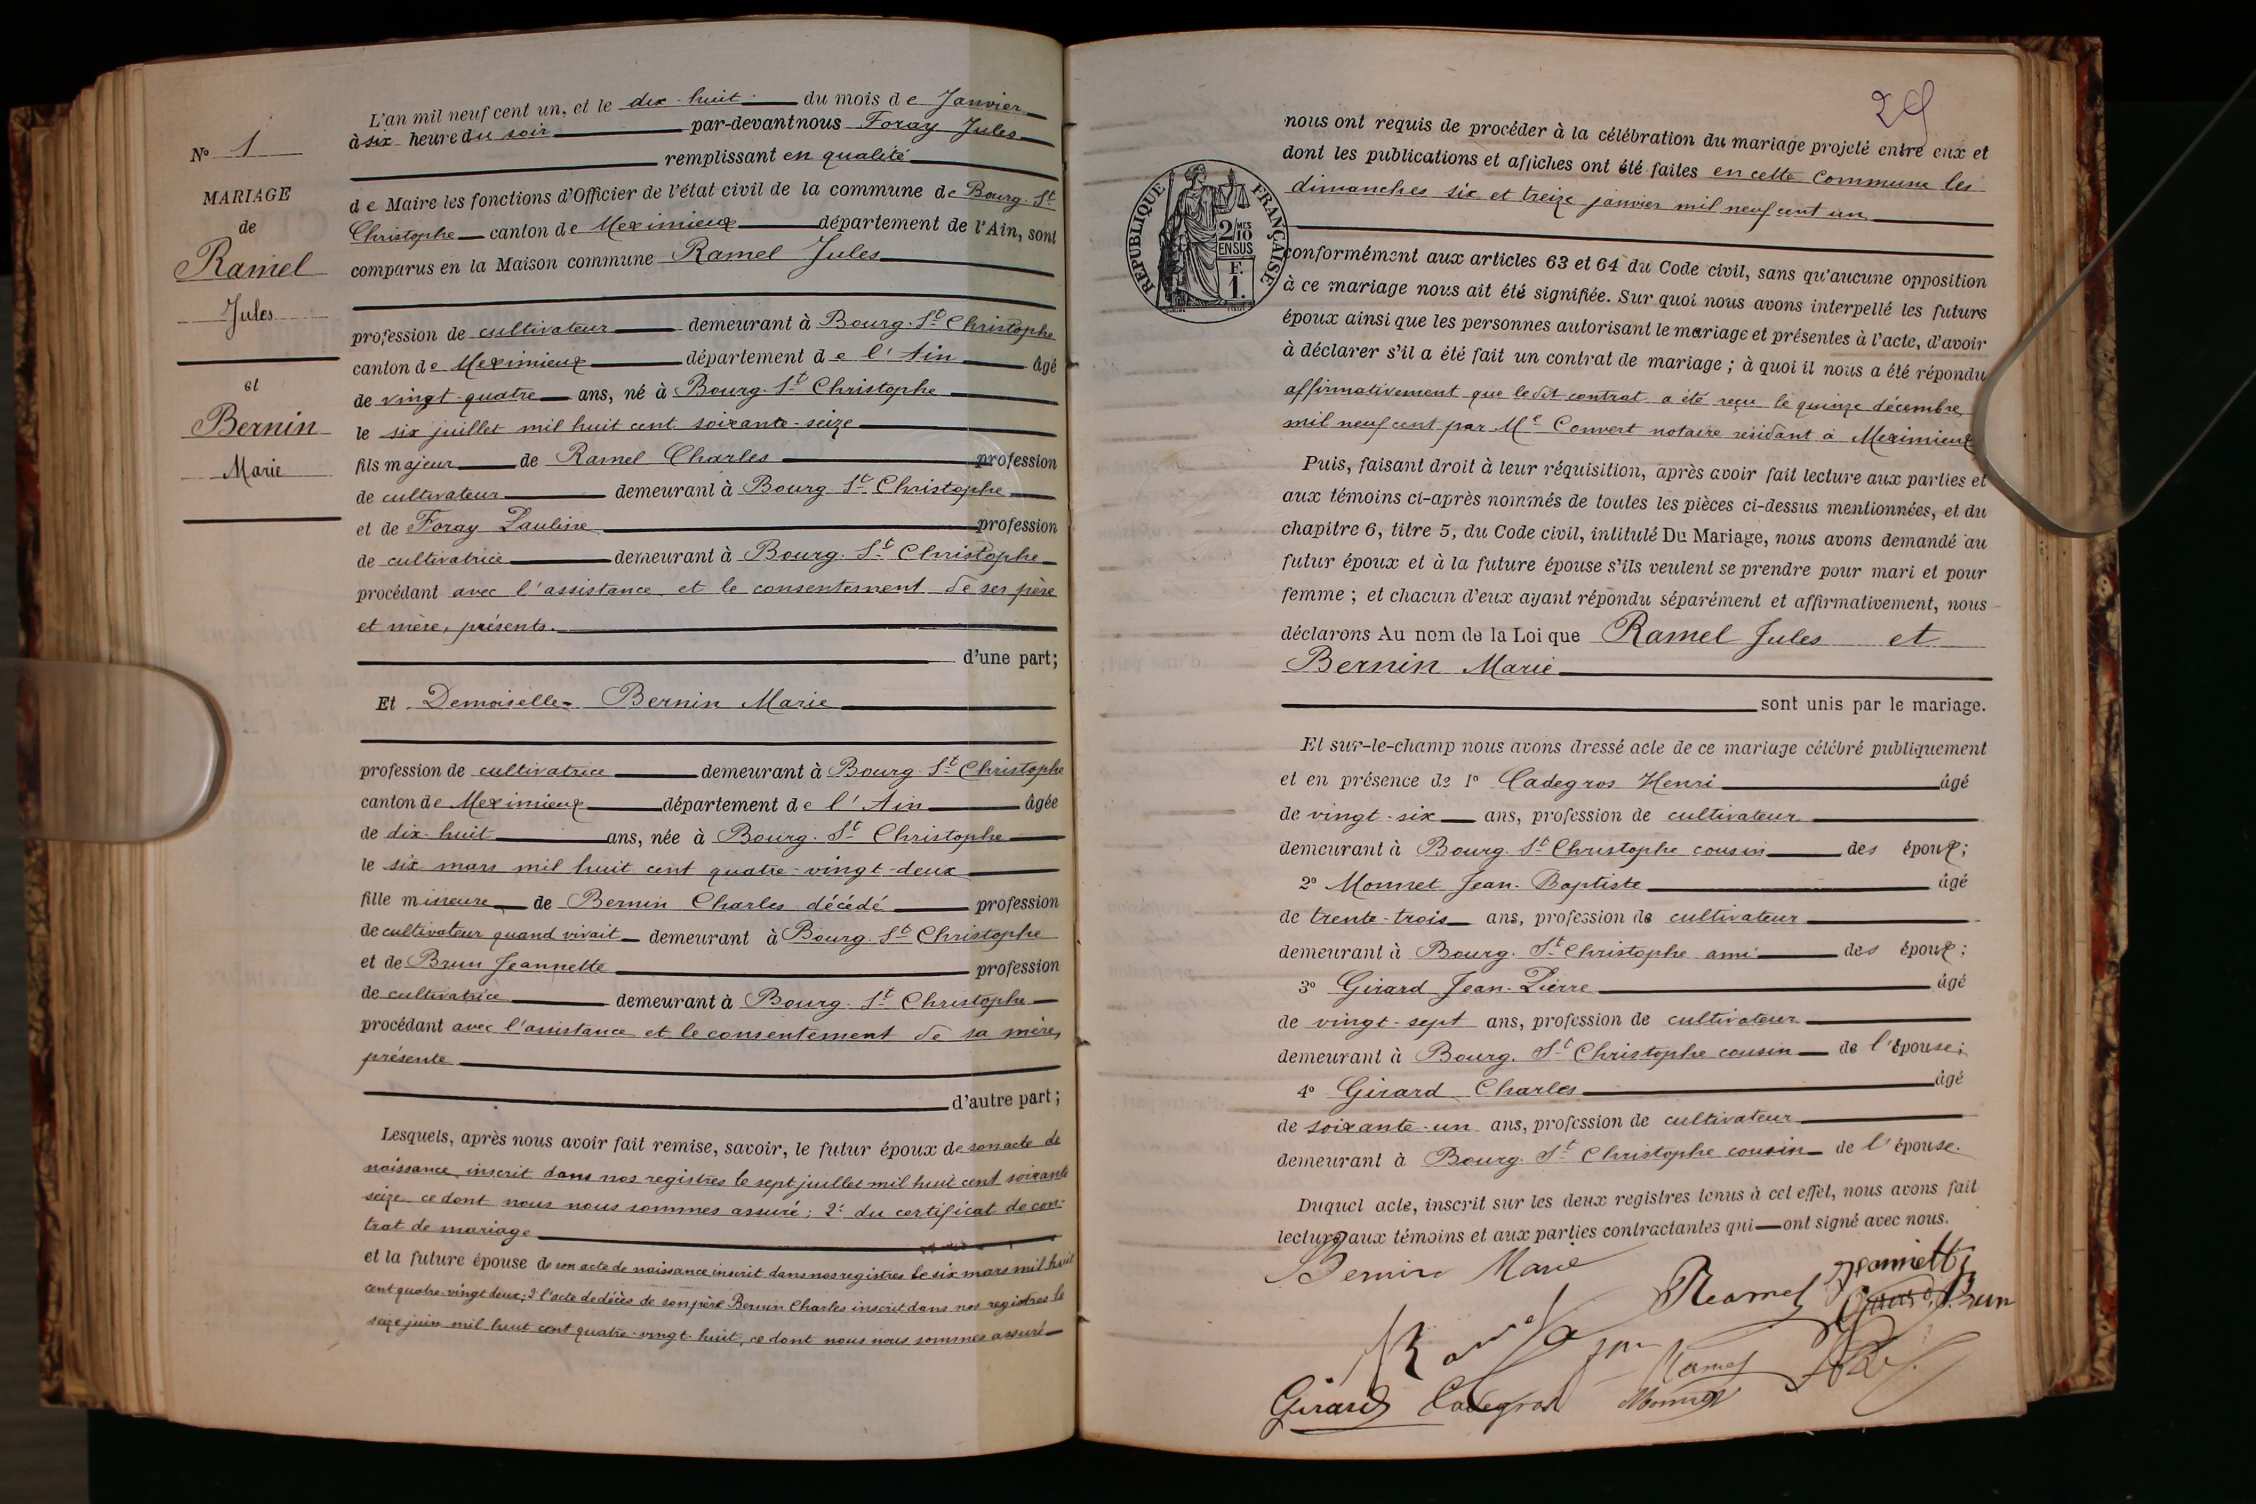 N° 1
MARIAGE
de
Ramel
Jules
et
Bernin
Marie
L'an mil neuf cent un, et le dix-huit du mois de Janvier
à six heure du soir par-devant nous Foray Jules
remplissant en qualité
de Maire les fonctions d'Officier de l'état civil de la commune de Bourg-St
Christophe canton de Meximieux département de l'Ain, sont
comparus en la Maison commune Ramel Jules
profession de cultivateur demeurant à Bourg-St Christophe
canton de Meximieux département de l'Ain âgé
de vingt-quatre ans, né à Bourg-St Christophe
le six juillet mil huit cent soixante-seize
fils majeur de Ramel Charles profession
de cultivateur demeurant à Bourg-St Christophe
et de Foray Pauline profession
de cultivatrice demeurant à Bourg-St Christophe
procédant avec l'assistance et le consentement de ses père
et mère, présents.
d'une part;
Et Demoiselle Bernin Marie
profession de cultivatrice demeurant à Bourg-St Christophe
canton de Meximieux département de l'Ain âgée
de dix-huit ans, née à Bourg-St Christophe
le six mars mil huit cent quatre-vingt-deux
fille mineure de Bernin Charles décédé profession
de cultivateur quand vivait demeurant à Bourg-St Christophe
et de Brun Jeannette profession
de cultivatrice demeurant à Bourg-St Christophe
procédant avec l'assistance et le consentement de sa mère,
présente
d'autre part;
Lesquels, après nous avoir fait remise, savoir, le futur époux de son acte de
naissance inscrit dans nos registres le sept juillet mil huit cent soixante
seize ce dont nous nous sommes assuré; 2° du certificat de con-
trat de mariage
et la future épouse de son acte de naissance inscrit dans nos registres le six mars mil huit
cent quatre-vingt deux; 2 l'acte de décès de son père Bernin Charles inscrit dans nos registres le
seize juin mil huit cent quatre-vingt-huit, ce dont nous nous sommes assuré
29
RÉPUBLIQUE FRANÇAISE
2/10 MES
EN SUS
F.
1.
nous ont requis de procéder à la célébration du mariage projeté entre eux et
dont les publications et affiches ont été faites en cette Commune les
dimanches six et treize janvier mil neuf cent un
conformément aux articles 63 et 64 du Code civil, sans qu'aucune opposition
à ce mariage nous ait été signifiée. Sur quoi nous avons interpellé les futurs
époux ainsi que les personnes autorisant le mariage et présentes à l'acte, d'avoir
à déclarer s'il a été fait un contrat de mariage; à quoi il nous a été répondu
affirmativement que ledit contrat a été reçu le quinze décembre
mil neuf cent par Me Convert notaire résidant à Meximieux
Puis, faisant droit à leur réquisition, après avoir fait lecture aux parties et
aux témoins ci-après nommés de toutes les pièces ci-dessus mentionnées, et du
chapitre 6, titre 5, du Code civil, intitulé Du Mariage, nous avons demandé au
futur époux et à la future épouse s'ils veulent se prendre pour mari et pour
femme; et chacun d'eux ayant répondu séparément et affirmativement, nous
déclarons Au nom de la Loi que Ramel Jules et
Bernin Marie
sont unis par le mariage.
Et sur-le-champ nous avons dressé acte de ce mariage célébré publiquement
et en présence de 1° Cadegros Henri âgé
de vingt-six ans, profession de cultivateur
demeurant à Bourg-St Christophe cousin des époux;
2° Monnet Jean-Baptiste âgé
de trente-trois ans, profession de cultivateur
demeurant à Bourg-St Christophe ami des époux;
3° Girard Jean-Pierre âgé
de vingt-sept ans, profession de cultivateur
demeurant à Bourg-St Christophe cousin de l'épouse;
4° Girard Charles âgé
de soixante-un ans, profession de cultivateur
demeurant à Bourg-St Christophe cousin de l'épouse.
Duquel acte, inscrit sur les deux registres tenus à cet effet, nous avons fait
lecture aux témoins et aux parties contractantes qui ont signé avec nous.
Bernin Marie
Ramel Jeannette
Brun
Ramel
Girard Cadegros Monnet